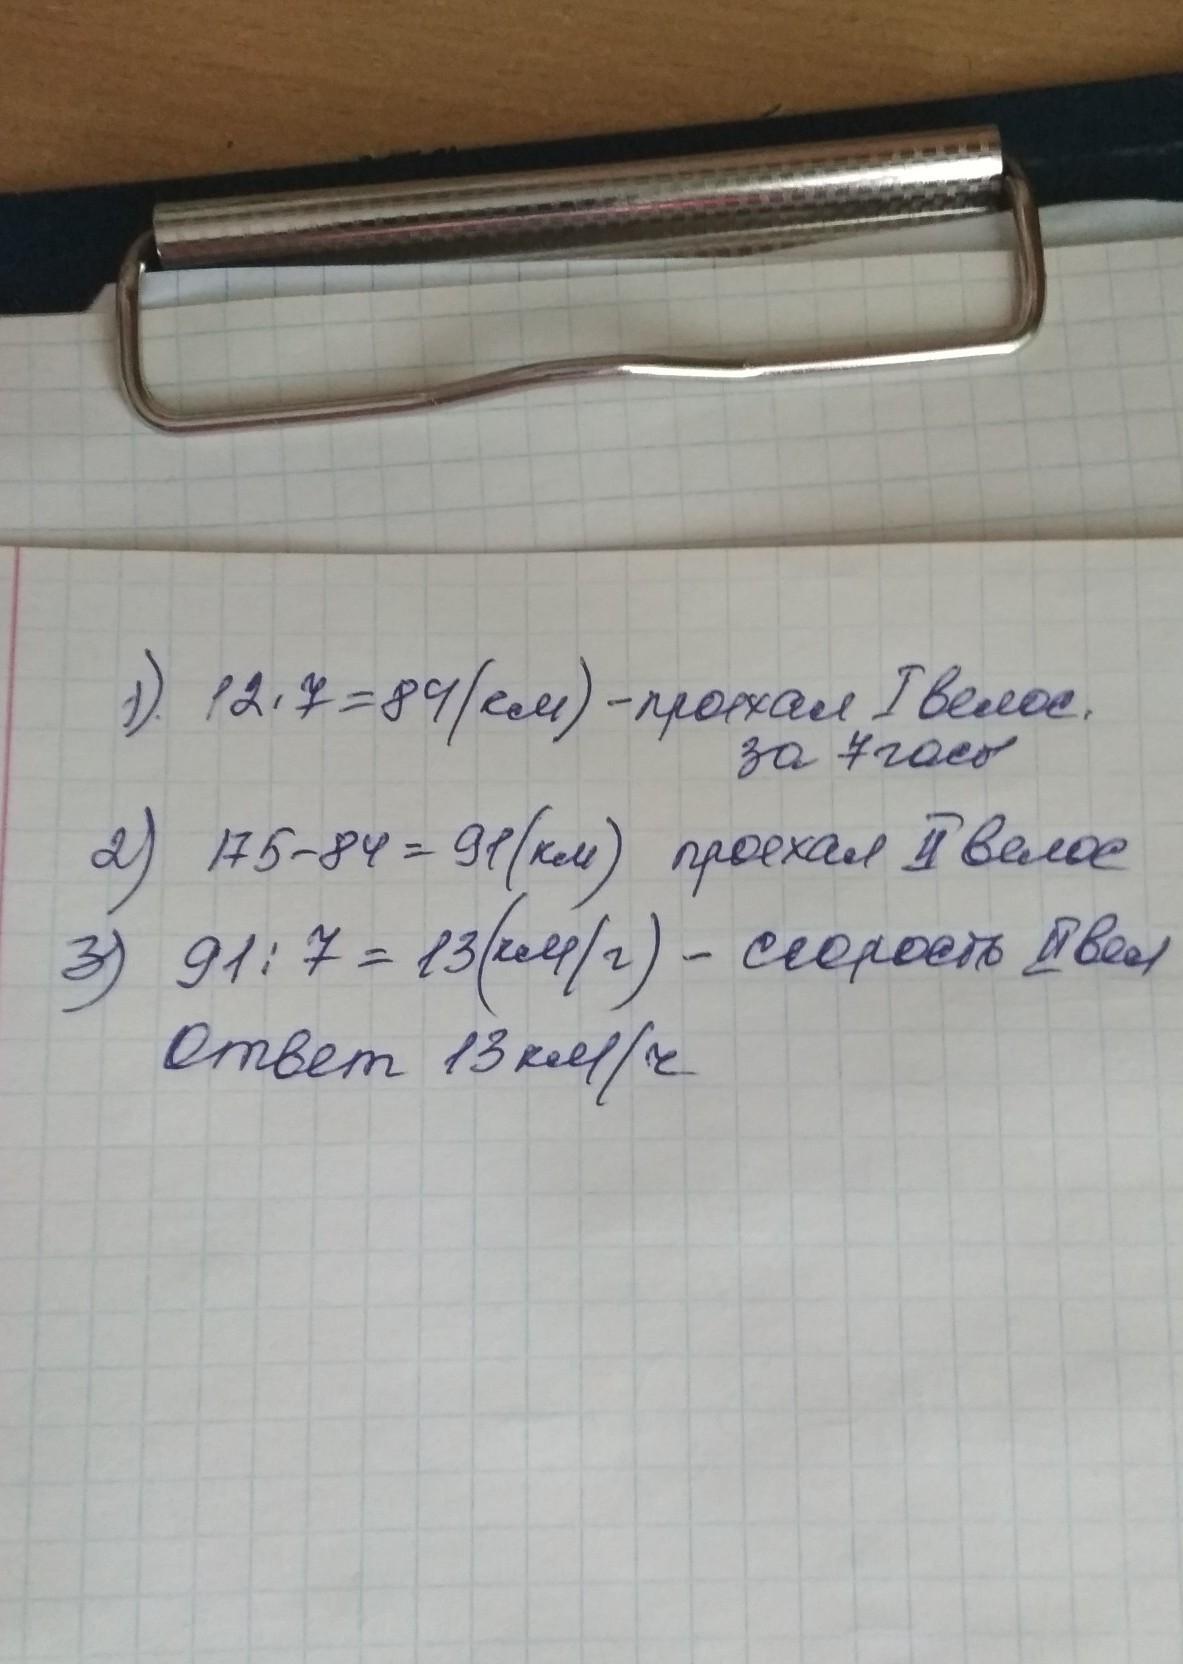 1). 12·7=84(км)-проехал I велос.
за 7 часов
2) 175-84=91(км) проехал II велос
3) 91:7=13(км/г) - скорость II вел
Ответ 13км/ч